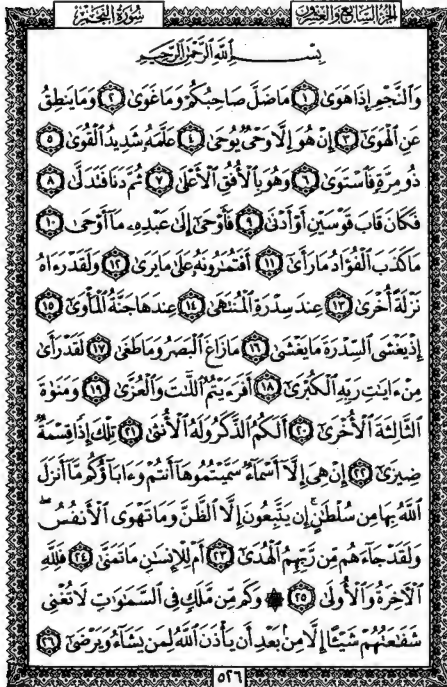 سُورَةُ النَّجْمِ
الجُزْءُ السَّابِعُ وَالعِشْرُونَ
بِسْمِ اللَّهِ الرَّحْمَٰنِ الرَّحِيمِ
وَالنَّجْمِ إِذَا هَوَىٰ ١ مَا ضَلَّ صَاحِبُكُمْ وَمَا غَوَىٰ ٢ وَمَا يَنطِقُ
عَنِ الْهَوَىٰ ٣ إِنْ هُوَ إِلَّا وَحْيٌ يُوحَىٰ ٤ عَلَّمَهُ شَدِيدُ الْقُوَىٰ ٥
ذُو مِرَّةٍ فَاسْتَوَىٰ ٦ وَهُوَ بِالْأُفُقِ الْأَعْلَىٰ ٧ ثُمَّ دَنَا فَتَدَلَّىٰ ٨
فَكَانَ قَابَ قَوْسَيْنِ أَوْ أَدْنَىٰ ٩ فَأَوْحَىٰ إِلَىٰ عَبْدِهِۦ مَا أَوْحَىٰ ١٠
مَا كَذَبَ الْفُؤَادُ مَا رَأَىٰ ١١ أَفَتُمَٰرُونَهُۥ عَلَىٰ مَا يَرَىٰ ١٢ وَلَقَدْ رَءَاهُ
نَزْلَةً أُخْرَىٰ ١٣ عِندَ سِدْرَةِ الْمُنتَهَىٰ ١٤ عِندَهَا جَنَّةُ الْمَأْوَىٰ ١٥
إِذْ يَغْشَى السِّدْرَةَ مَا يَغْشَىٰ ١٦ مَا زَاغَ الْبَصَرُ وَمَا طَغَىٰ ١٧ لَقَدْ رَأَىٰ
مِنْ ءَايَٰتِ رَبِّهِ الْكُبْرَىٰ ١٨ أَفَرَءَيْتُمُ اللَّٰتَ وَالْعُزَّىٰ ١٩ وَمَنَوٰةَ
الثَّالِثَةَ الْأُخْرَىٰ ٢٠ أَلَكُمُ الذَّكَرُ وَلَهُ الْأُنثَىٰ ٢١ تِلْكَ إِذًا قِسْمَةٌ
ضِيزَىٰ ٢٢ إِنْ هِيَ إِلَّا أَسْمَاءٌ سَمَّيْتُمُوهَا أَنتُمْ وَءَابَاؤُكُم مَّا أَنزَلَ
اللَّهُ بِهَا مِن سُلْطَٰنٍ ۚ إِن يَتَّبِعُونَ إِلَّا الظَّنَّ وَمَا تَهْوَى الْأَنفُسُ ۖ
وَلَقَدْ جَاءَهُم مِّن رَّبِّهِمُ الْهُدَىٰ ٢٣ أَمْ لِلْإِنسَٰنِ مَا تَمَنَّىٰ ٢٤ فَلِلَّهِ
الْآخِرَةُ وَالْأُولَىٰ ٢٥ ۞ وَكَم مِّن مَّلَكٍ فِي السَّمَٰوَٰتِ لَا تُغْنِي
شَفَٰعَتُهُمْ شَيْـًٔا إِلَّا مِن بَعْدِ أَن يَأْذَنَ اللَّهُ لِمَن يَشَاءُ وَيَرْضَىٰ ٢٦
٥٢٦